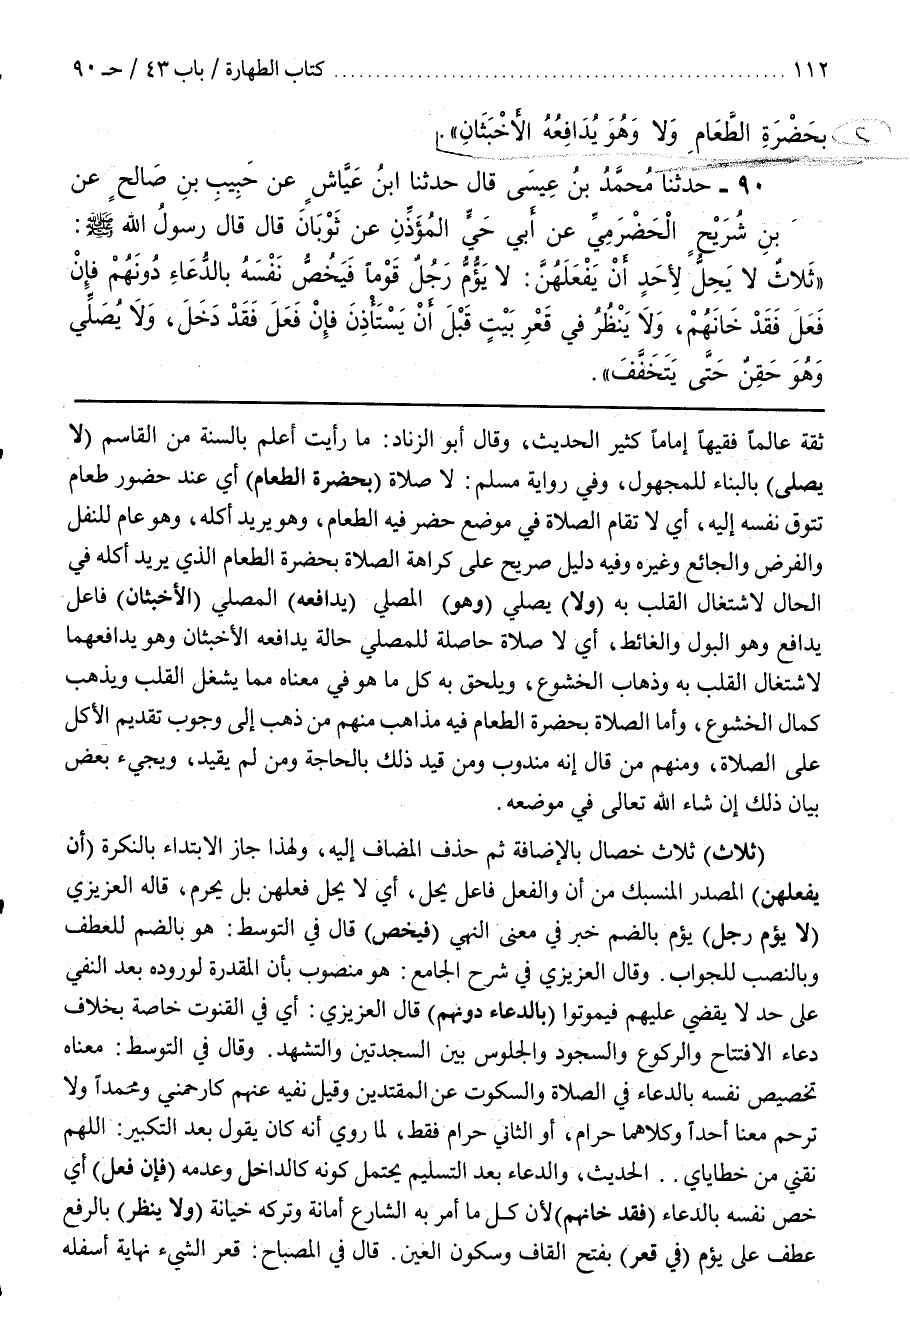 ١١٢ ........................................ كتاب الطهارة / باب ٤٣ / حـ ٩٠
٢ بِحَضْرَةِ الطَّعَامِ وَلا وَهُوَ يُدَافِعُهُ الأَخْبَثَانِ».
٩٠ ـ حدثنا مُحَمَّدُ بنُ عِيسَى قال حدثنا ابنُ عَيَّاشٍ عن حَبِيبِ بنِ صَالحٍ عن
بنِ شُرَيْحٍ الْحَضْرَمِيِّ عن أبي حَيٍّ المُؤَذِّنِ عن ثَوْبَانَ قال قال رسولُ الله ﷺ:
«ثَلاثٌ لا يَحِلُّ لِأحَدٍ أنْ يَفْعَلَهُنَّ: لا يَؤُمُّ رَجُلٌ قَوْماً فَيَخُصُّ نَفْسَهُ بالدُّعَاءِ دُونَهُمْ فإنْ
فَعَلَ فَقَدْ خَانَهُمْ، وَلَا يَنْظُرُ في قَعْرِ بَيْتٍ قَبْلَ أنْ يَسْتَأْذِنَ فإنْ فَعَلَ فَقَدْ دَخَلَ، وَلَا يُصَلِّي
وَهُوَ حَقِنٌ حَتَّى يَتَخَفَّفَ».
ثقة عالماً فقيهاً إماماً كثير الحديث، وقال أبو الزناد: ما رأيت أعلم بالسنة من القاسم (لا
يصلى) بالبناء للمجهول، وفي رواية مسلم: لا صلاة (بحضرة الطعام) أي عند حضور طعام
تتوق نفسه إليه، أي لا تقام الصلاة في موضع حضر فيه الطعام، وهو يريد أكله، وهو عام للنفل
والفرض والجائع وغيره وفيه دليل صريح على كراهة الصلاة بحضرة الطعام الذي يريد أكله في
الحال لاشتغال القلب به (ولا) يصلي (وهو) المصلي (يدافعه) المصلي (الأخبثان) فاعل
يدافع وهو البول والغائط، أي لا صلاة حاصلة للمصلي حالة يدافعه الأخبثان وهو يدافعهما
لاشتغال القلب به وذهاب الخشوع، ويلحق به كل ما هو في معناه مما يشغل القلب ويذهب
كمال الخشوع، وأما الصلاة بحضرة الطعام فيه مذاهب منهم من ذهب إلى وجوب تقديم الأكل
على الصلاة، ومنهم من قال إنه مندوب ومن قيد ذلك بالحاجة ومن لم يقيد، ويجيء بعض
بيان ذلك إن شاء الله تعالى في موضعه.
(ثلاث) ثلاث خصال بالإضافة ثم حذف المضاف إليه، ولهذا جاز الابتداء بالنكرة (أن
يفعلهن) المصدر المنسبك من أن والفعل فاعل يحل، أي لا يحل فعلهن بل يحرم، قاله العزيزي
(لا يؤم رجل) يؤم بالضم خبر في معنى النهي (فيخص) قال في التوسط: هو بالضم للعطف
وبالنصب للجواب. وقال العزيزي في شرح الجامع: هو منصوب بأن المقدرة لوروده بعد النفي
على حد لا يقضي عليهم فيموتوا (بالدعاء دونهم) قال العزيزي: أي في القنوت خاصة بخلاف
دعاء الافتتاح والركوع والسجود والجلوس بين السجدتين والتشهد. وقال في التوسط: معناه
تخصيص نفسه بالدعاء في الصلاة والسكوت عن المقتدين وقيل نفيه عنهم كارحمني ومحمداً ولا
ترحم معنا أحداً وكلاهما حرام، أو الثاني حرام فقط، لما روي أنه كان يقول بعد التكبير: اللهم
نقني من خطاياي . . الحديث، والدعاء بعد التسليم يحتمل كونه كالداخل وعدمه (فإن فعل) أي
خص نفسه بالدعاء (فقد خانهم) لأن كل ما أمر به الشارع أمانة وتركه خيانة (ولا ينظر) بالرفع
عطف على يؤم (في قعر) بفتح القاف وسكون العين. قال في المصباح: قعر الشيء نهاية أسفله